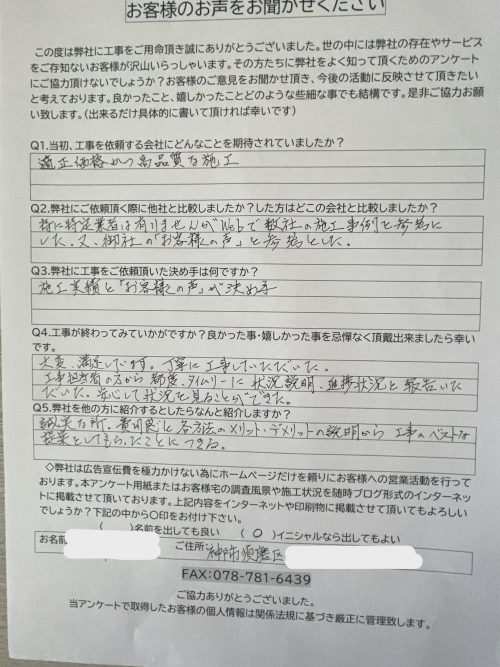 お客様のお声をお聞かせください
この度は弊社に工事をご用命頂き誠にありがとうございました。世の中には弊社の存在やサービス
をご存知ないお客様が沢山いらっしゃいます。その方たちに弊社をよく知って頂くためのアンケート
にご協力頂けないでしょうか？お客様のご意見をお聞かせ頂き、今後の活動に反映させて頂きたい
と考えております。良かったこと、嬉しかったことどのような些細な事でも結構です。是非ご協力お願
い致します。（出来るだけ具体的に書いて頂ければ幸いです）
Q1.当初、工事を依頼する会社にどんなことを期待されていましたか？
適正価格かつ高品質な施工
Q2.弊社にご依頼頂く際に他社と比較しましたか？した方はどこの会社と比較しましたか？
特に特定業者は有りませんがWebで数社の施工事例を参考に
した。又、御社の「お客様の声」を参考とした。
Q3.弊社に工事をご依頼頂いた決め手は何ですか？
施工実績と「お客様の声」が決め手
Q4.工事が終わってみていかがですか？良かった事・嬉しかった事を忌憚なく頂戴出来ましたら幸い
です。
大変、満足しています。丁寧に工事していただいた。
工事担当者の方から都度、タイムリーに状況説明、進捗状況を報告いた
だいた。安心して状況を見ることができた。
Q5.弊社を他の方に紹介するとしたらなんと紹介しますか？
誠実な所。費用感と各方法のメリット・デメリットの説明から工事のベストな
提案をしてもらったことにつきる。
◇弊社は広告宣伝費を極力かけない為にホームページだけを頼りにお客様への営業活動を行って
おります。本アンケート用紙またはお客様宅の調査風景や施工状況を随時ブログ形式のインターネッ
トに掲載させて頂いております。上記内容をインターネットや印刷物に掲載させて頂いてもよろしい
でしょうか？下記の中から〇印をお付け下さい。
（ ）名前を出しても良い （ ○ ）イニシャルなら出してもよい
お名前 ご住所: 神戸市須磨区
FAX:078-781-6439
ご協力ありがとうございました。
当アンケートで取得したお客様の個人情報は関係法規に基づき厳正に管理致します。